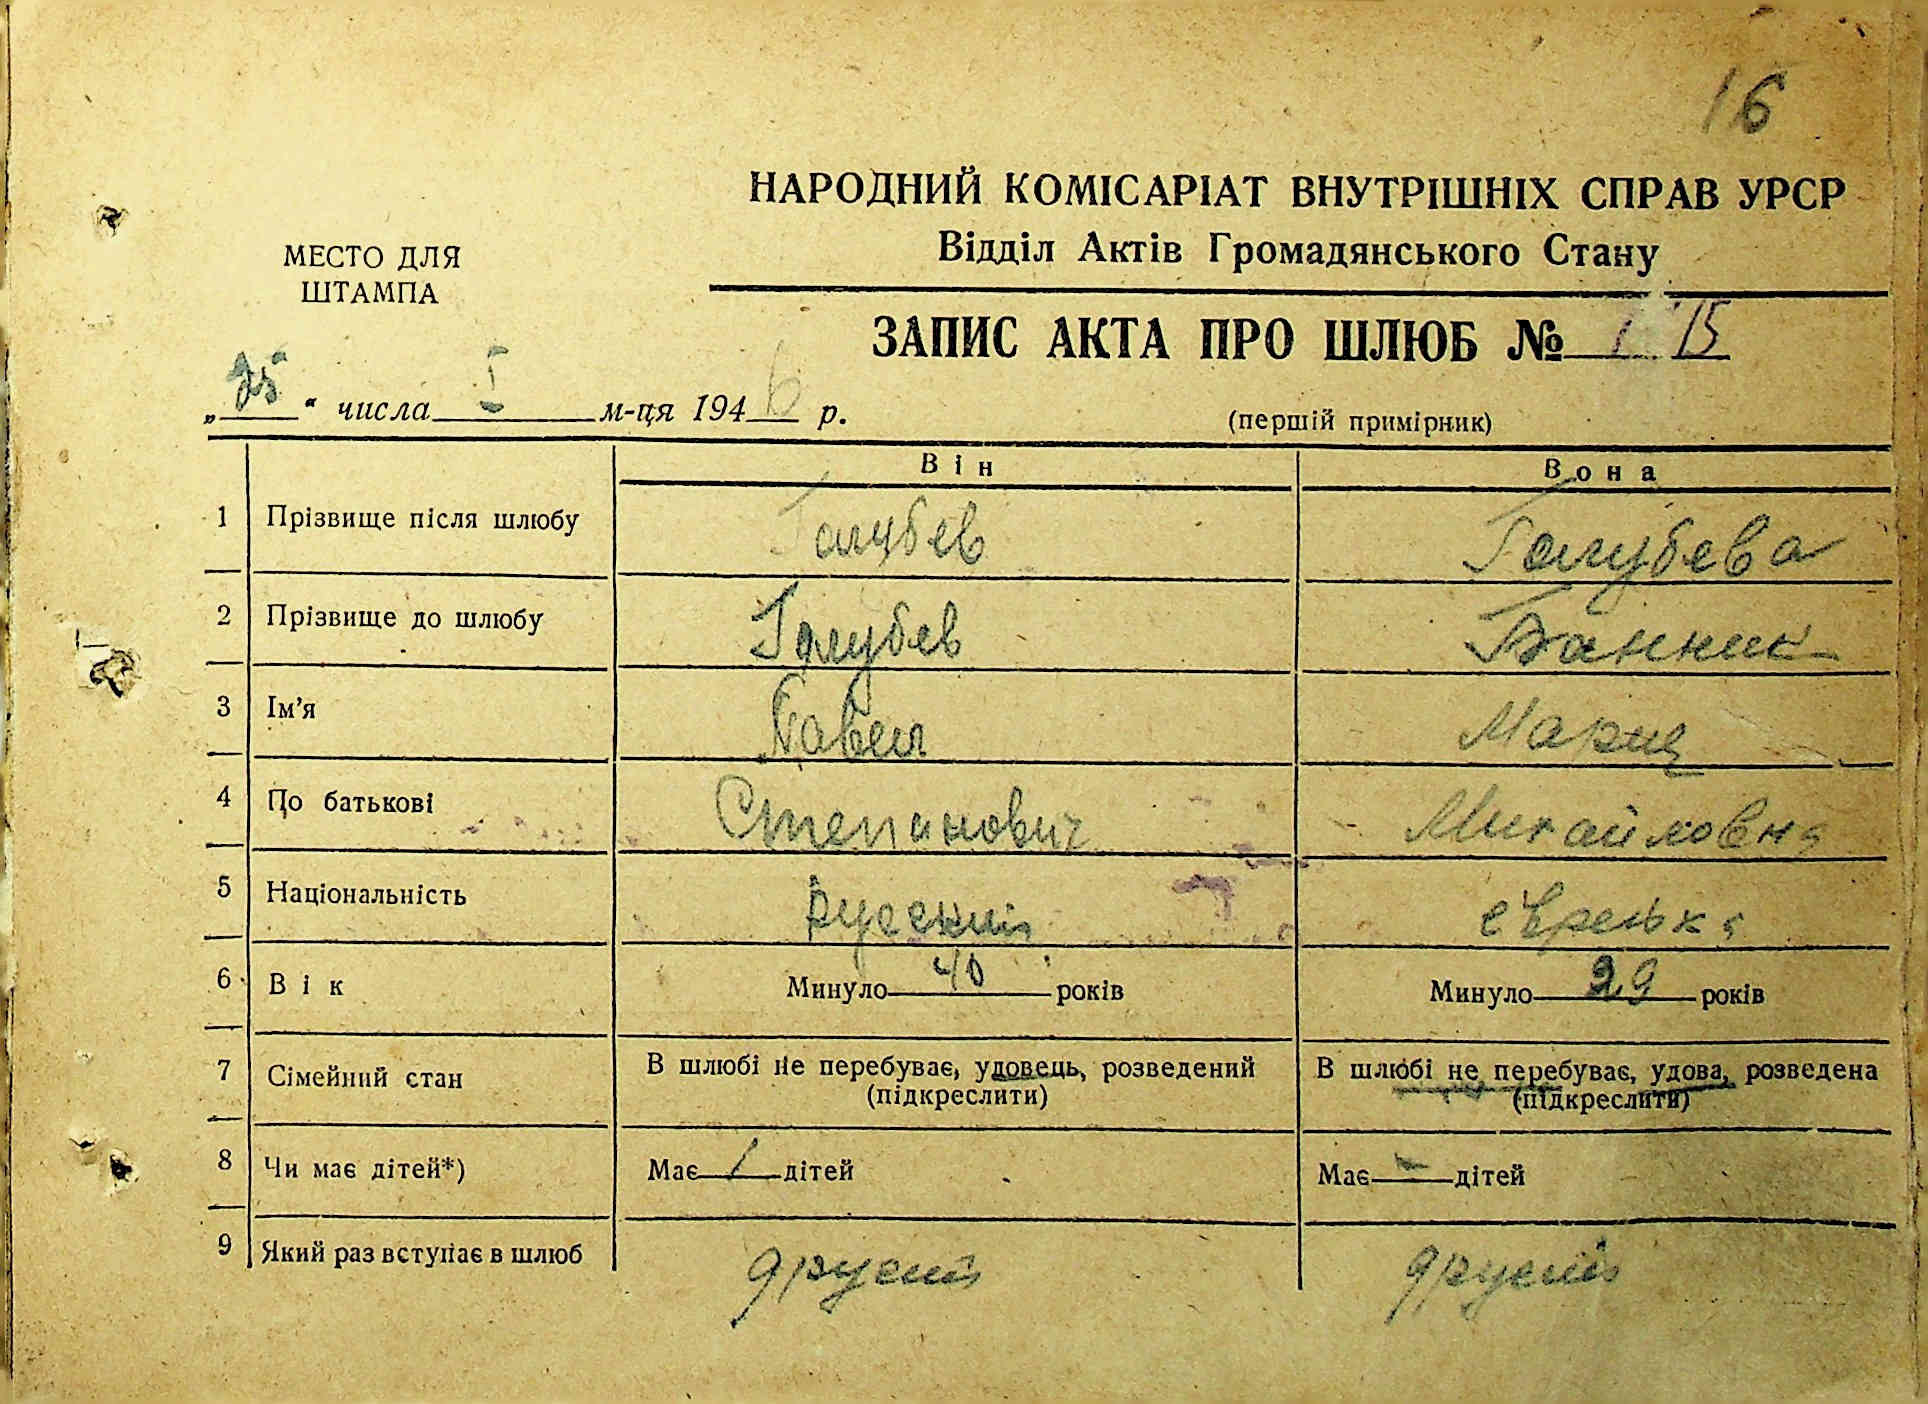 16
НАРОДНИЙ КОМІСАРІАТ ВНУТРІШНІХ СПРАВ УРСР
Відділ Актів Громадянського Стану
МЕСТО ДЛЯ
ШТАМПА
ЗАПИС АКТА ПРО ШЛЮБ № 15
„25“ числа I м-ця 1946 р.
(першій примірник)
Він Вона
1 Прізвище після шлюбу Голубев Голубева
2 Прізвище до шлюбу Голубев Банник
3 Ім'я Павел Мария
4 По батькові Степанович Михайловна
5 Національність Русский еврейка
6 Вік Минуло 40 років Минуло 29 років
7 Сімейний стан В шлюбі не перебуває, удовець, розведений В шлюбі не перебуває, удова, розведена
(підкреслити) (підкреслити)
8 Чи має дітей*) Має 1 дітей Має — дітей
9 Який раз вступає в шлюб другий другий